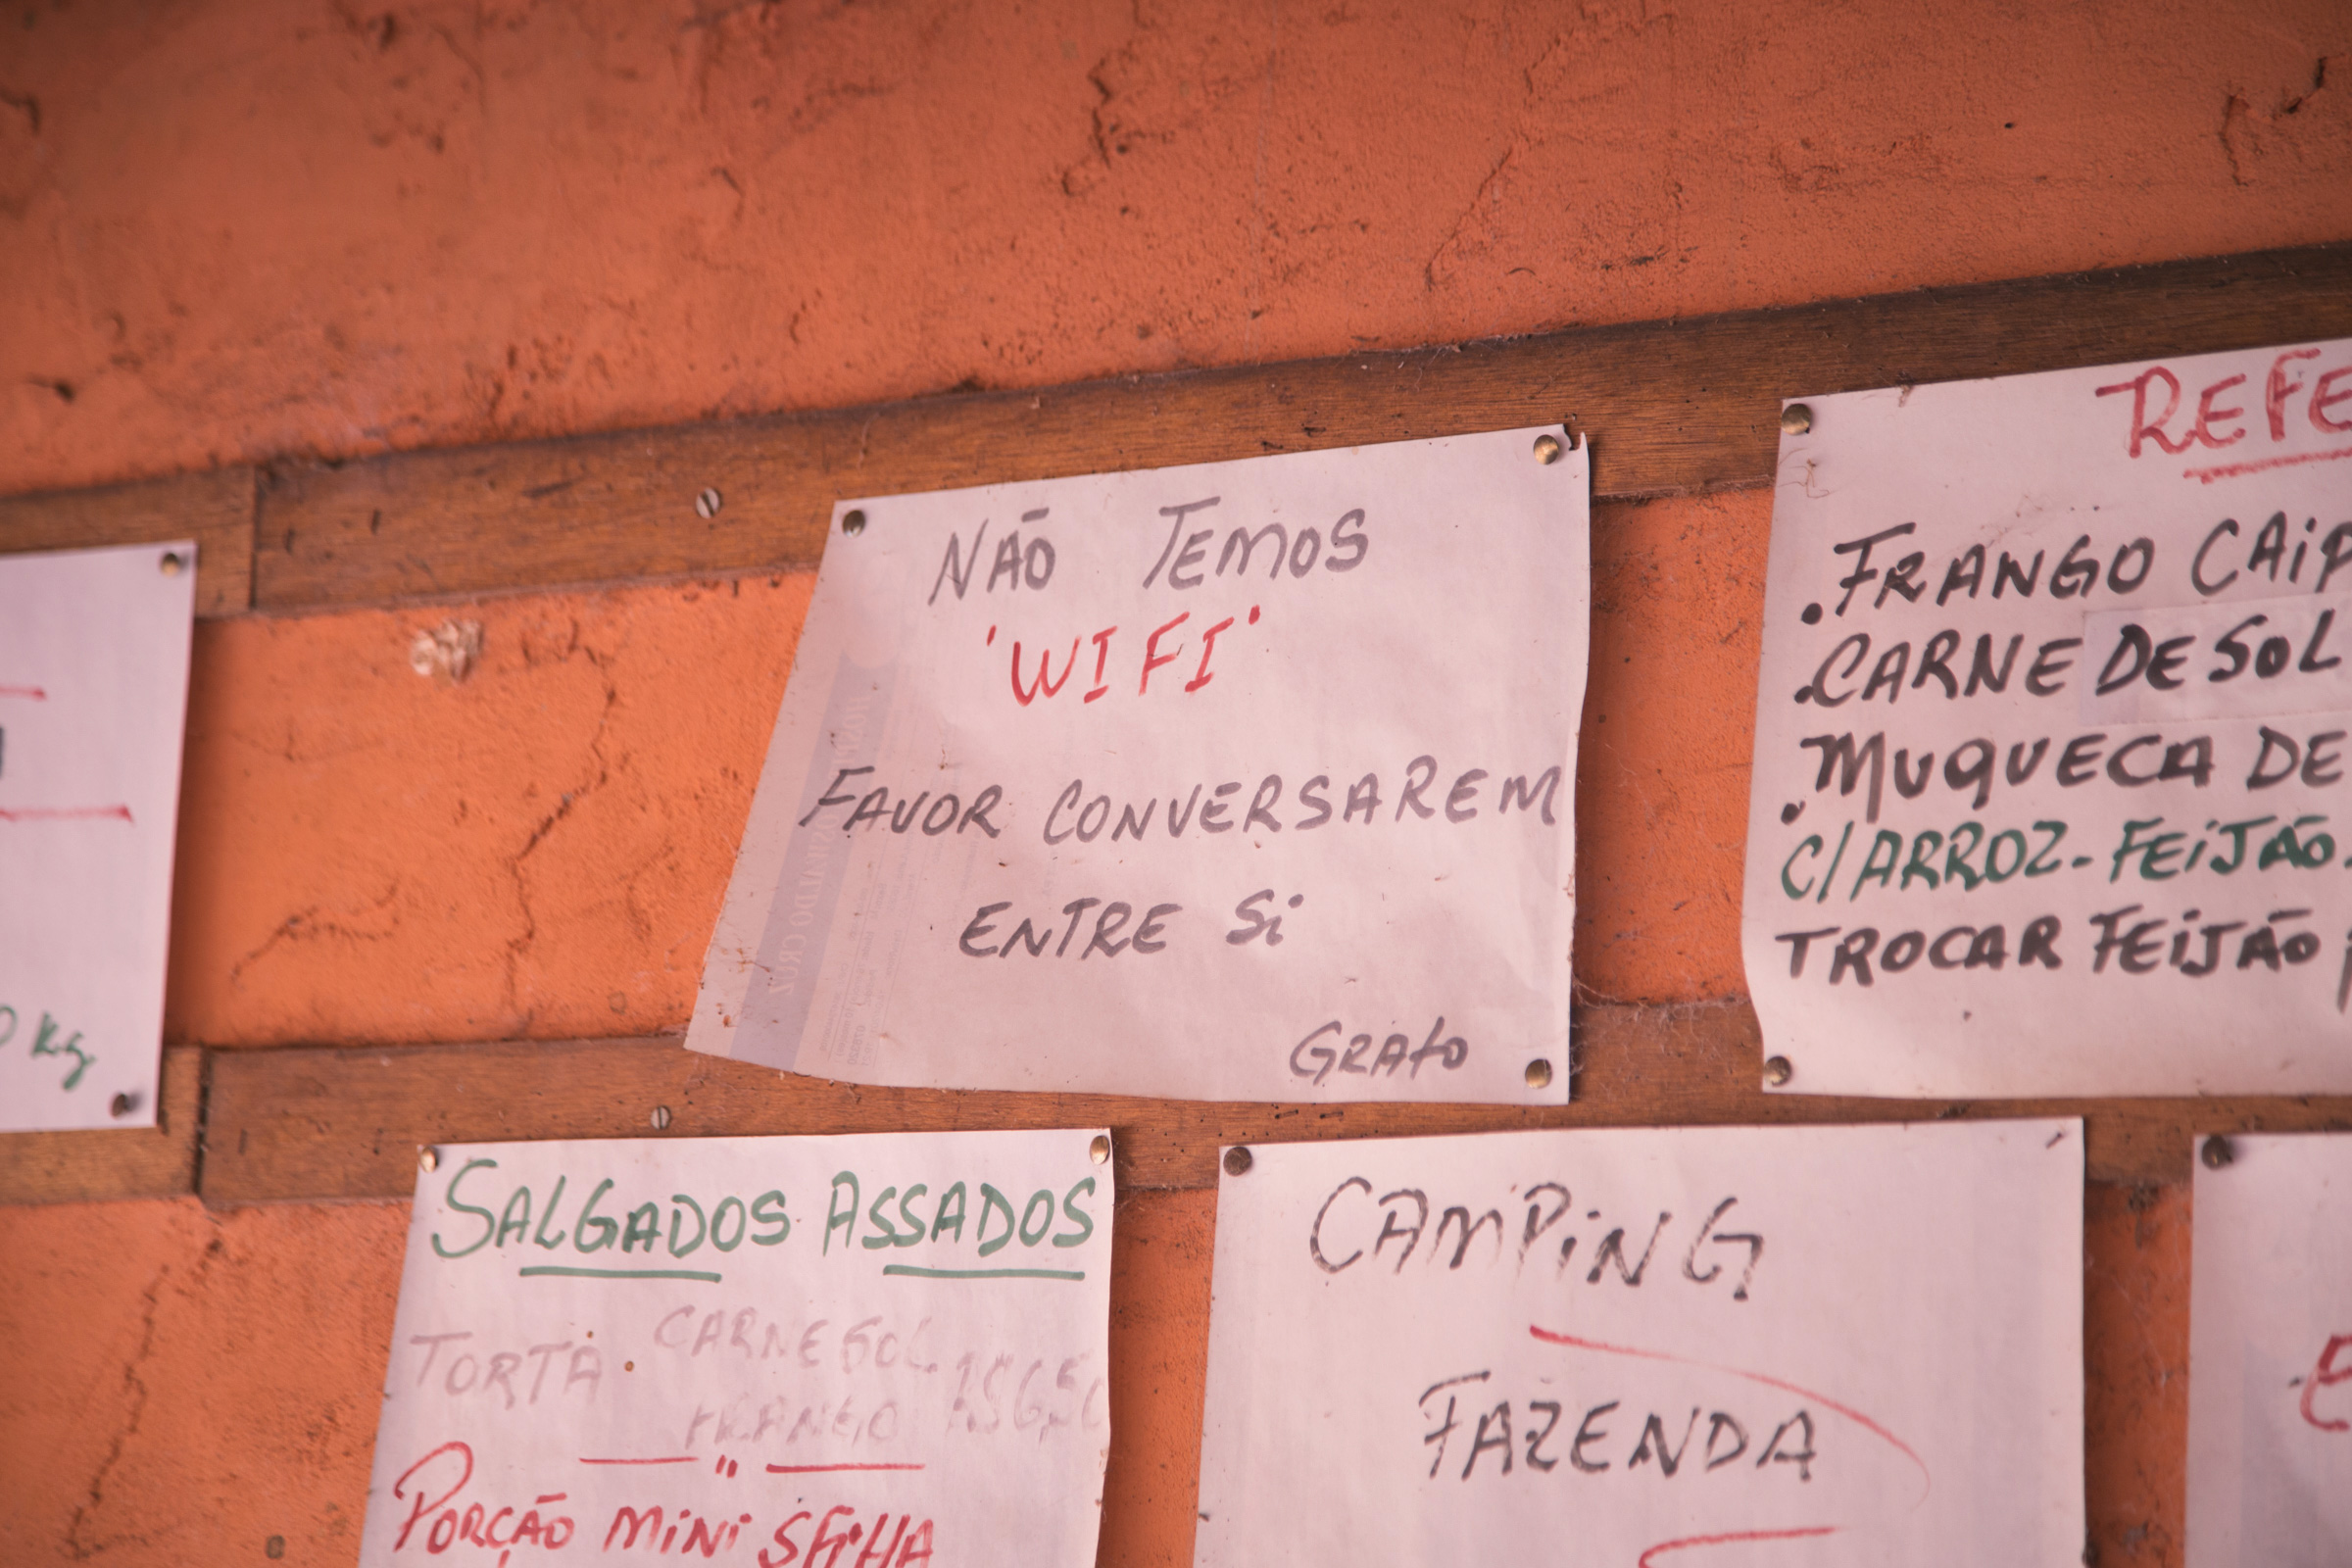 NÃO TEMOS
'WIFI'
FAVOR CONVERSAREM
ENTRE Si
GRAto
REFE
.FRANGO CAIP
.CARNE DE SOL
.MUQUECA DE
C/ARROZ-FEiJÃO.
TROCAR FEiJÃO
Kg
SALGADOS ASSADOS
TORTA. CARNE SOL
FRANGO
PORÇÃO MiNi SFiHA
CAMPiNG
FAZENDA